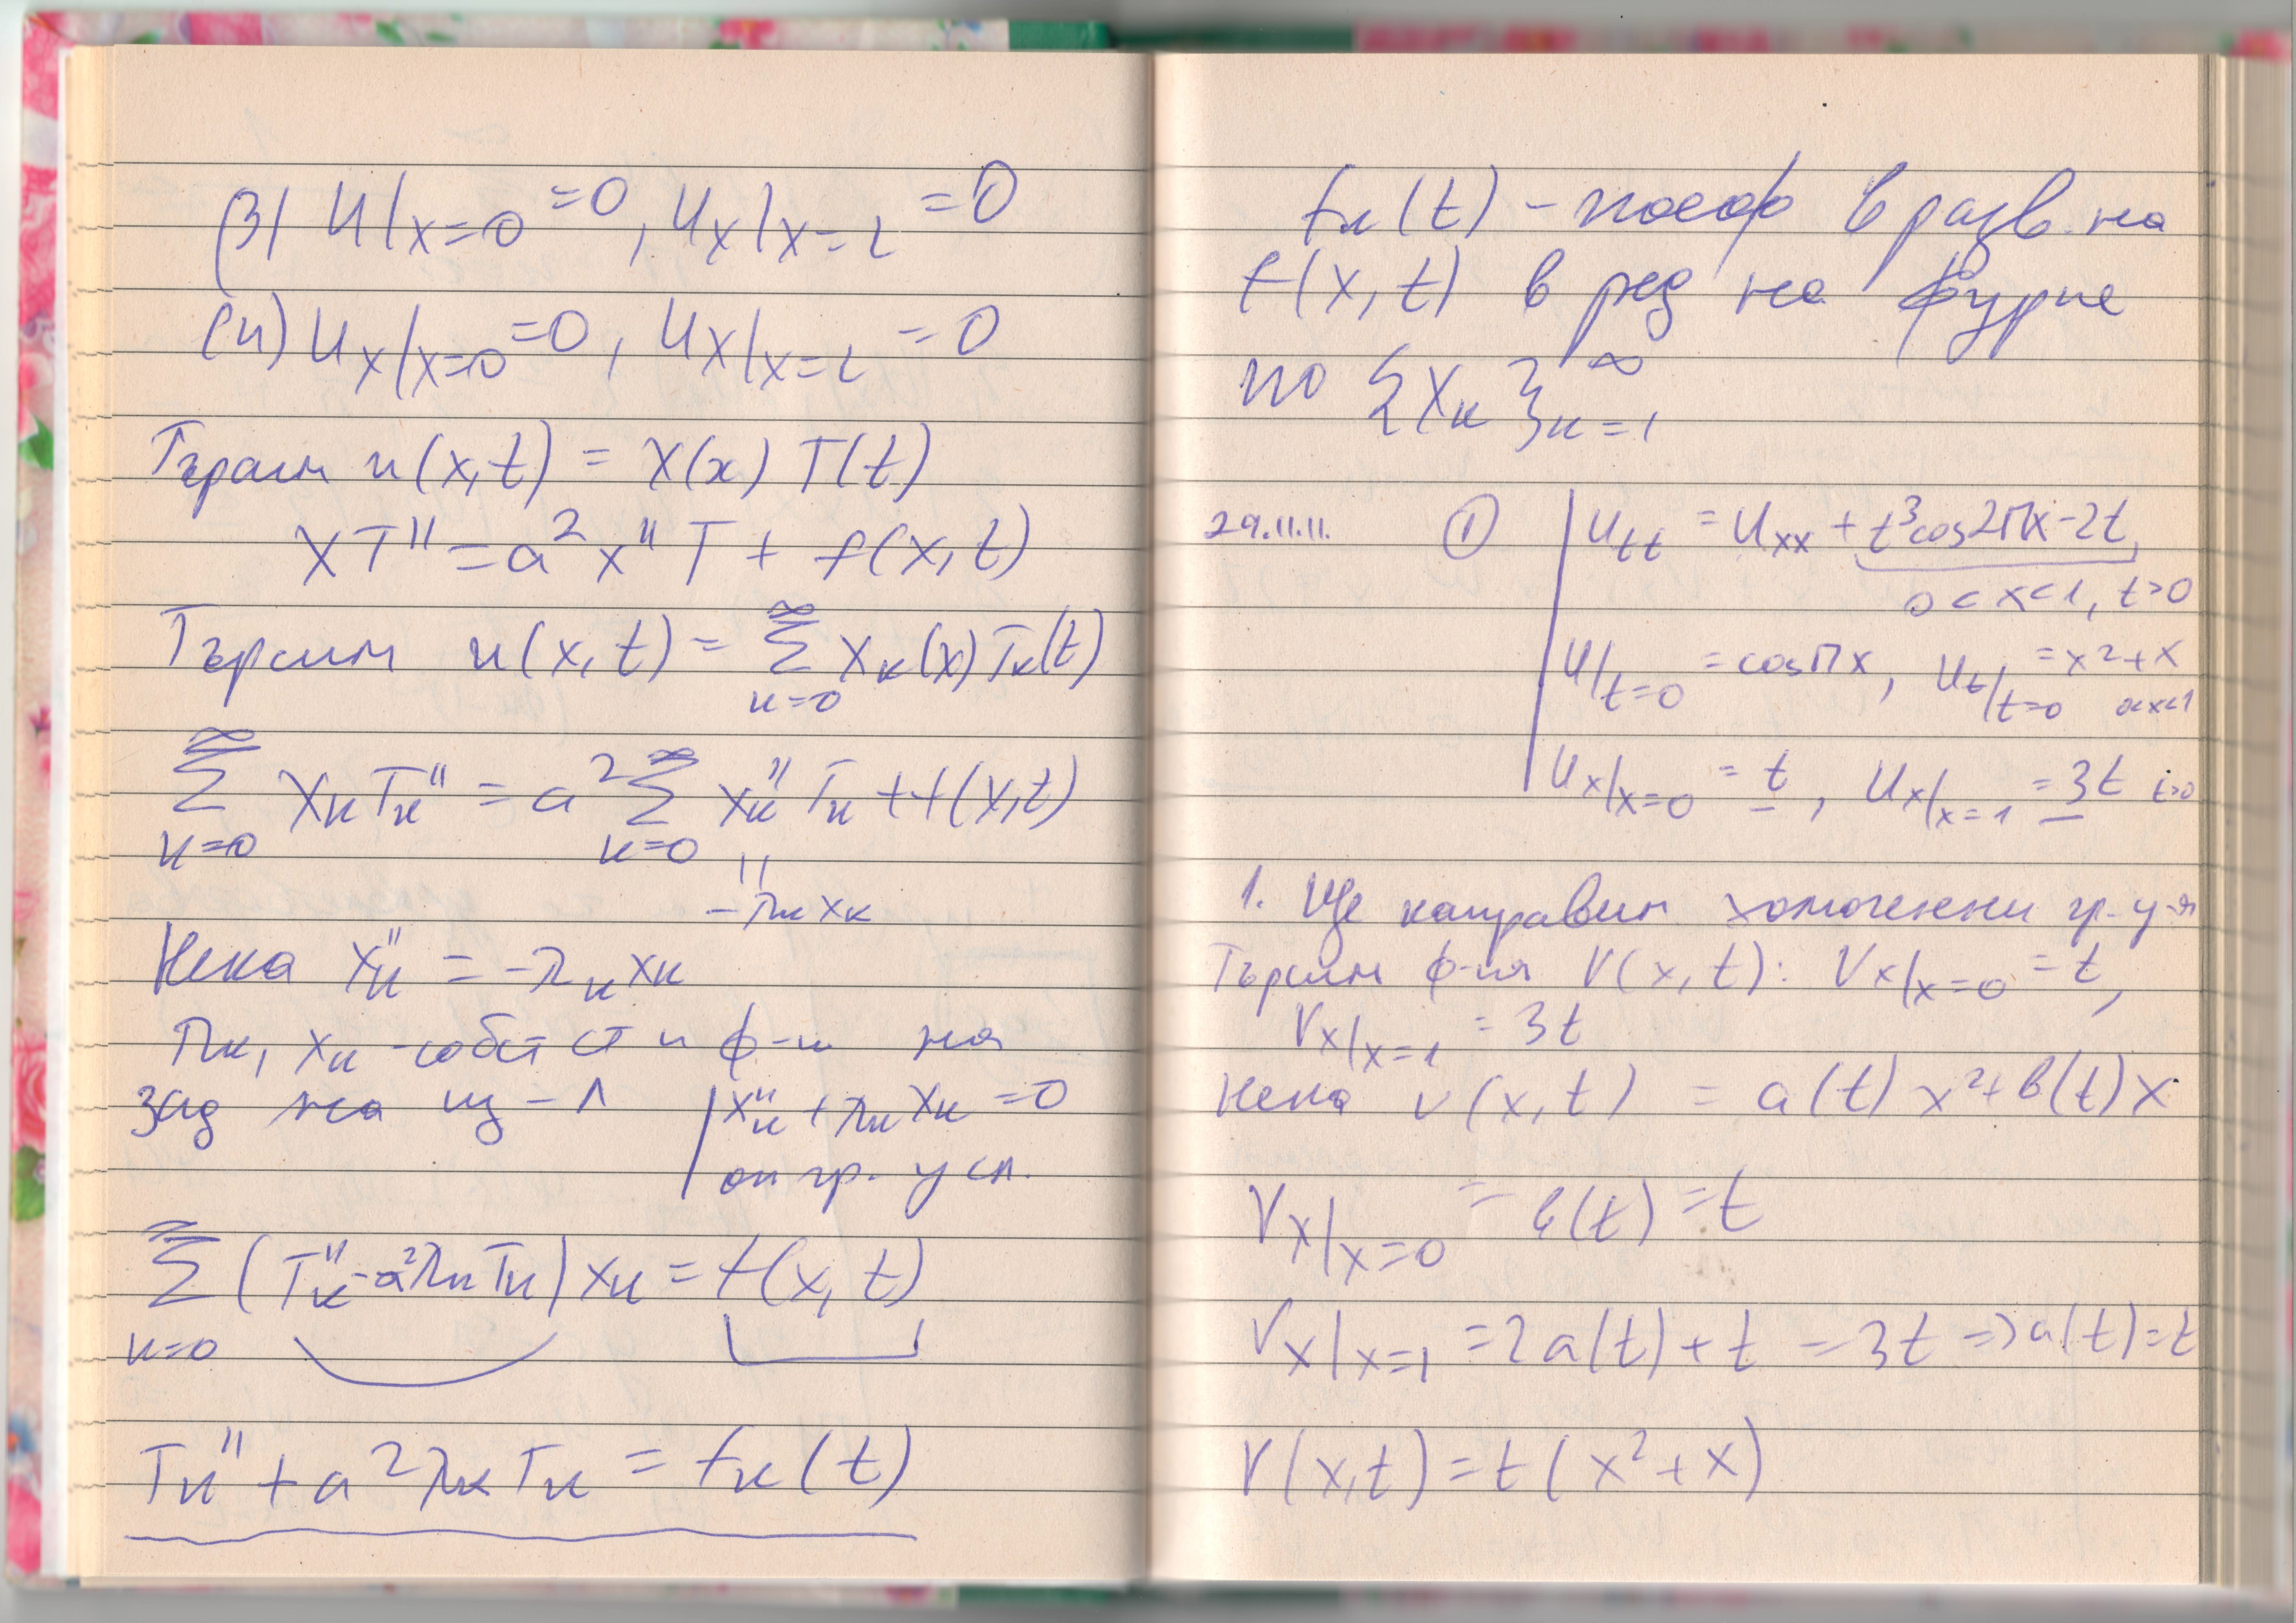 (3) u|x=0 =0, ux|x=l =0
(4) ux|x=0 =0, ux|x=l =0
Търсим u(x,t) = X(x) T(t)
XT'' = a²X''T + f(x,t)
Търсим u(x,t) = ∞∑k=0 Xk(x)Tk(t)
∞∑k=0 XkTk'' = a² ∞∑k=0 Xk''Tk + f(x,t)
||
-λkXk
Нека Xk'' = -λkXk
λk, Xk - собст ст и ф-и на
зад на Щ-Л | Xk'' + λkXk = 0
| гр. усл.
∞∑k=0 (Tk'' - a²λkTk) Xk = f(x,t)
Tk'' + a²λkTk = fk(t)
fk(t) - коеф в разв. на
f(x,t) в ред на Фурие
по {Xk}∞k=1
29.11.11. ① | utt = uxx + t³cos2πx - 2t,
0<x<1, t>0
u|t=0 = cosπx, ut|t=0 = x²+x
0<x<1
ux|x=0 = t, ux|x=1 = 3t t>0
1. Ще направим хомогенни гр. у-я
Търсим ф-ия V(x,t): Vx|x=0 = t,
Vx|x=1 = 3t
Нека v(x,t) = a(t)x² + b(t)x
Vx|x=0 = b(t) = t
Vx|x=1 = 2a(t) + t = 3t => a(t) = t
V(x,t) = t(x²+x)